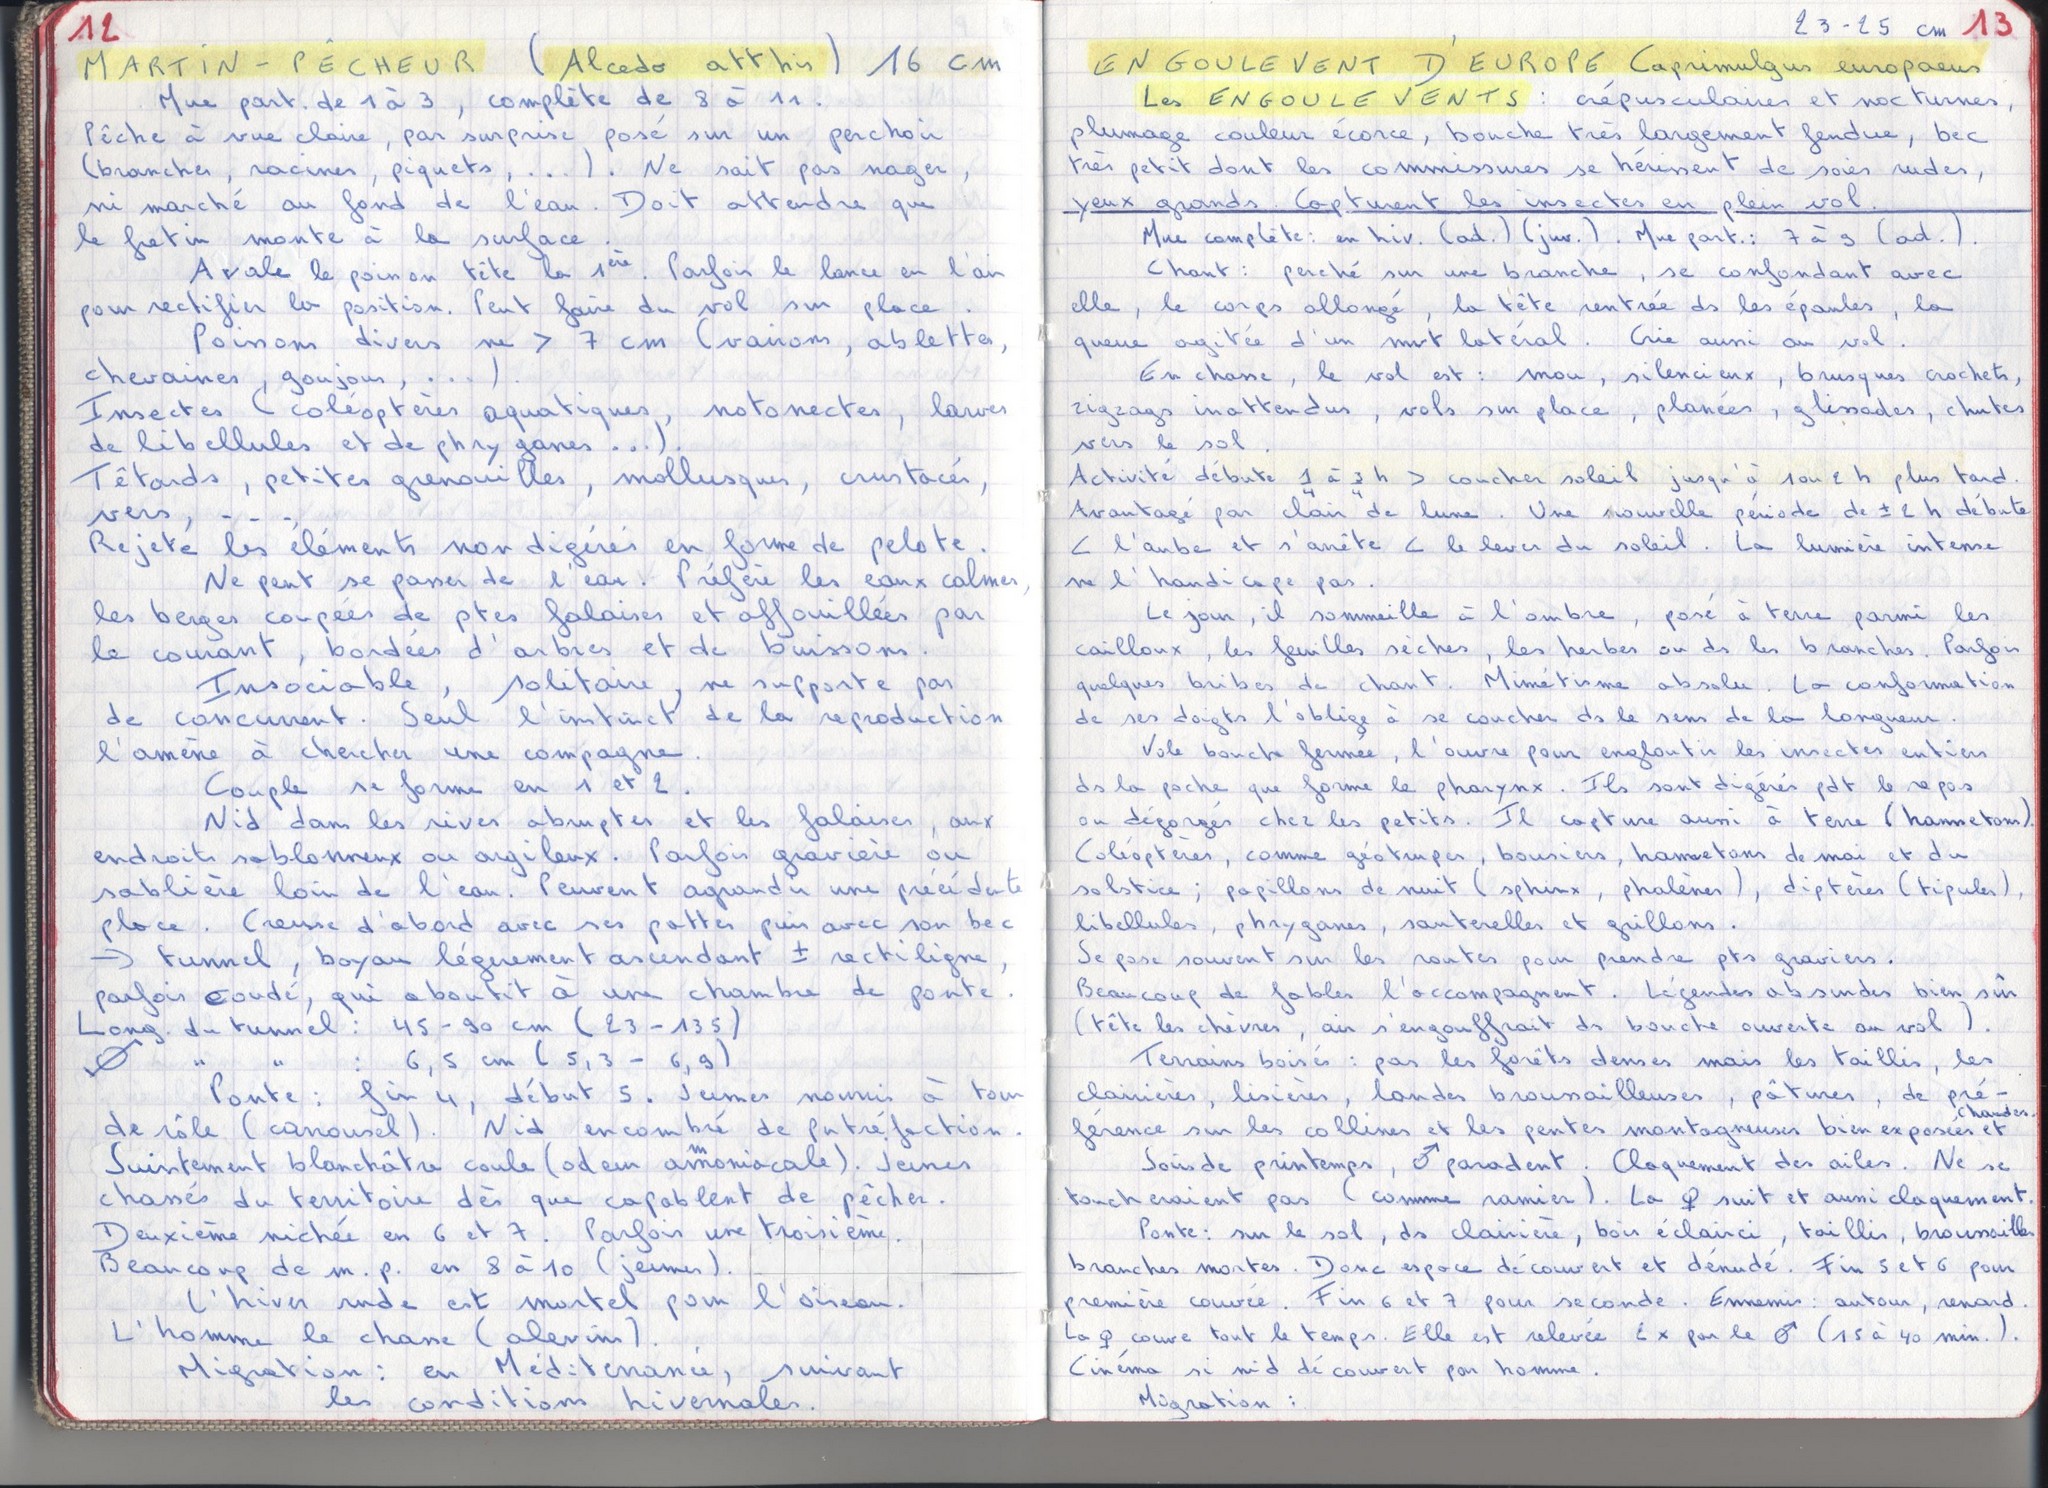 12
MARTIN-PÊCHEUR (Alcedo atthis) 16 cm
Mue part. de 1 à 3, complète de 8 à 11.
Pêche à vue claire, par surprise posé sur un perchoir
(branches, racines, piquets, ...). Ne sait pas nager,
ni marché au fond de l'eau. Doit attendre que
le fretin monte à la surface.
Avale le poisson tête la 1ère. Parfois le lance en l'air
pour rectifier la position. Peut faire du vol sur place.
Poissons divers ne > 7 cm (vairons, ablettes,
chevaines, goujons, ...).
Insectes (coléoptères aquatiques, notonectes, larves
de libellules et de phryganes ...).
Têtards, petites grenouilles, mollusques, crustacés,
vers, ...
Rejete les éléments non digérés en forme de pelote.
Ne peut se passer de l'eau. Préfère les eaux calmes,
les berges coupées de ptes falaises et affouillées par
le courant, bordées d'arbres et de buissons.
Insociable, solitaire, ne supporte pas
de concurrent. Seul l'instinct de la reproduction
l'amène à chercher une compagne.
Couple se forme en 1 et 2.
Nid dans les rives abruptes et les falaises, aux
endroits sablonneux ou argileux. Parfois gravière ou
sablière loin de l'eau. Peuvent agrandir une précédente
place. Creuse d'abord avec ses pattes puis avec son bec
→ tunnel, boyau légèrement ascendant ± rectiligne,
parfois coudé, qui aboutit à une chambre de ponte.
Long. du tunnel : 45-90 cm (23-135)
Ø " " : 6,5 cm (5,3-6,9)
Ponte : fin 4, début 5. Jeunes nourris à tour
de rôle (carrousel). Nid encombré de putréfaction.
Suintement blanchâtre coule (odeur ammoniacale). Jeunes
chassés du territoire dès que capablent de pêcher.
Deuxième nichée en 6 et 7. Parfois une troisième.
Beaucoup de m.p. en 8 à 10 (jeunes).
L'hiver rude est mortel pour l'oiseau.
L'homme le chasse (alevins).
Migration : en Méditerranée, suivant
les conditions hivernales.
23-25 cm 13
ENGOULEVENT D'EUROPE Caprimulgus europaeus
Les ENGOULEVENTS : crépusculaires et nocturnes,
plumage couleur écorce, bouche très largement fendue, bec
très petit dont les commissures se hérissent de soies rudes,
yeux grands. Capturent les insectes en plein vol.
Mue complète : en hiv. (ad.) (juv.). Mue part. : 7 à 9 (ad.).
Chant : perché sur une branche, se confondant avec
elle, le corps allongé, la tête rentrée ds les épaules, la
queue agitée d'un mvt latéral. Crie aussi au vol.
En chasse, le vol est : mou, silencieux, brusques crochets,
zigzags inattendus, vols sur place, planées, glissades, chutes
vers le sol.
Activité débute 1 à 3 h > coucher soleil jusqu'à 1 ou 2 h plus tard.
Avantagé par "clair" de lune. Une nouvelle période de ± 2 h débute
< l'aube et s'arrête < le lever du soleil. La lumière intense
ne l'handicape pas.
Le jour, il sommeille à l'ombre, posé à terre parmi les
cailloux, les feuilles sèches, les herbes ou ds les branches. Parfois
quelques bribes de chant. Mimétisme absolu. La conformation
de ses doigts l'oblige à se coucher ds le sens de la longueur.
Vole bouche fermée, l'ouvre pour engloutir les insectes entiers
ds la poche que forme le pharynx. Ils sont digérés pdt le repos
ou dégorgés chez les petits. Il capture aussi à terre (hannetons).
Coléoptères, comme géotrupes, bousiers, hannetons de mai et du
solstice ; papillons de nuit (sphinx, phalènes), diptères (tipules),
libellules, phryganes, sauterelles et grillons.
Se pose souvent sur les routes pour prendre pts graviers.
Beaucoup de fables l'accompagnent. Légendes absurdes bien sûr
(tête les chèvres, air s'engouffrait ds bouche ouverte au vol).
Terrains boisés : pas les forêts denses mais les taillis, les
clairières, lisières, landes broussailleuses, pâtures, de pré-
férence sur les collines et les pentes montagneuses bien exposées et chaudes.
Soirs de printemps, ♂ paradent. Claquement des ailes. Ne se
toucheraient pas (comme ramier). La ♀ suit et aussi claquement.
Ponte : sur le sol, ds clairière, bois éclairci, taillis, broussailles
branches mortes. Donc espace découvert et dénudé. Fin 5 et 6 pour
première couvée. Fin 6 et 7 pour seconde. Ennemis : autour, renard.
La ♀ couve tout le temps. Elle est relevée 2 x par le ♂ (15 à 40 min.).
Cinéma si nid découvert par homme.
Migration :